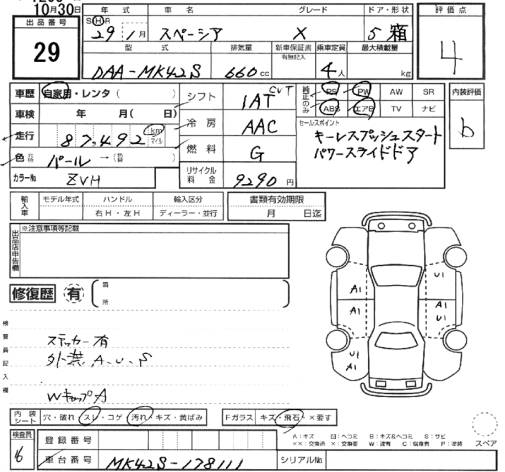 10月30日
出品番号
29
年式 車名 グレード ドア・形状
S H R
29年 1月 スペーシア X 5 箱
評価点
4
型式 排気量 新車保証書 有無記入 乗車定員 最大積載量
DAA-MK42S 660cc 4人 kg
車歴 自家用・レンタ ( )
シフト 1AT CVT
純正のみ PS PW AW SR
ABS エアB TV ナビ
内装評価
b
車検 年 月( 日)
冷房 AAC
セールスポイント
キーレスプッシュスタート
パワースライドドア
走行 87,492 km マイル
燃料 G
色 パール → (色替 )
カラーNo ZVH
リサイクル料金 9290円
輸入車 モデル年式 ハンドル 輸入区分
右H・左H ディーラー・並行
書類有効期限
月 日迄
出品店申告欄 ※注意事項等記載
修復歴 有 箇所
検査員記入欄
ステッカー有
外装 A.U.S
WキップA
A1 U1
A1 A1
U1 A1 U1
内装シート 穴・破れ スレ・コゲ 汚れ・キズ・黄ばみ
Fガラス キズ・飛石・×要す
A:キズ U:ヘコミ B:キズ&ヘコミ S:サビ
××:交換済 ×:交換 W:波有 C:腐食 P:塗装
スペア
検査員
登録番号
車台番号 MK42S-178111 シリアルNo